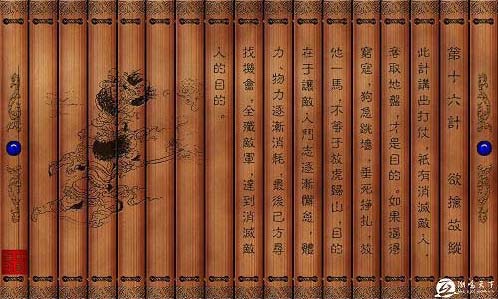 第十六計　欲擒故縱
此計講出打仗，衹有消滅敵人，
奪取地盤，才是目的。如果逼得
窮寇，狗急跳墻，垂死掙扎，放
他一馬，不等于放虎歸山，目的
在于讓敵人鬥志逐漸懈怠，體
力、物力逐漸消耗，最後己方尋
找機會，全殲敵軍，達到消滅敵
人的目的。